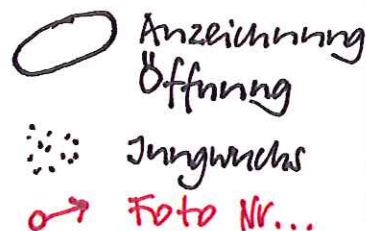 Anzeichnung
Öffnung
Jungwuchs
Foto Nr...